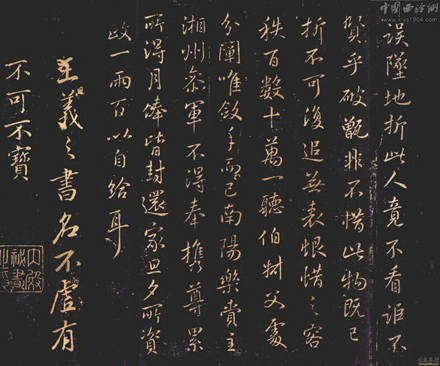 中國西泠網
www.xlys1904.com
誤墜地折此人竟不看詎不
賢乎破甑非不惜此物既已
折不可復追無表恨惜之容
秩百數十萬一聽伯樹父處
分闔唯斂手而已南陽樂賞主
湘州參軍不得奉携尊累
所得月俸皆封還家旦夕所資
政一兩百以自給耳
王羲之書名不虛有
不可不寶